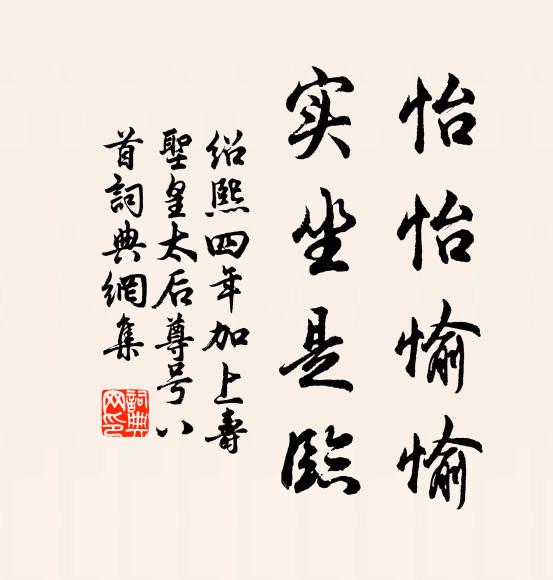 怡怡愉愉
实坐是临
绍熙四年加上寿
聖皇太后尊号八
首詞典網集
詞典
网印